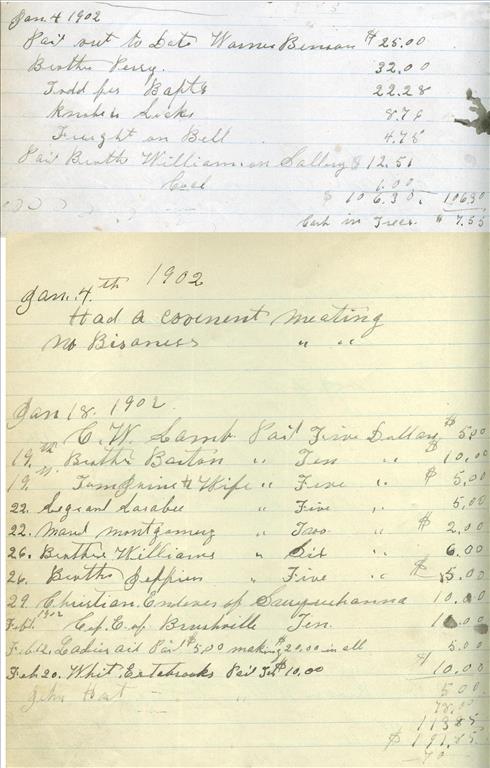 Jan 4 1902
Paid out to Date Warner Benson $ 25.00
Brother Perry. 32.00
Todd for Bapts 22.28
8.76
Freight on Bell 4.75
Paid Broths William on Sallery $ 12.51
Coal 1.00
$ 106.30. 106.30
Cash in Treas. $ 7.55
Jan. 4th 1902
Had a covenent meating
No Bisaness " "
Jan 18. 1902.
C. W. Lamb. Paid Five Dollars $ 5.00
19.th Brother Barton " Ten " $ 10.00
19. & Wife " Five " $ 5.00
22. " Five " 5.00
22. Maud Montgomery " Two " $ 2.00
26. Brother Williams " Six " 6.00
26. Brother Jeffries " Five " $ 5.00
29. Christian Endever of 10.00
Feb 1902 C. E. of Brushville Ten. 10.00
Feb 12. Ladies aid Paid $5.00 making $20.00 in all 5.00
Feb 20. Whit Estabrooks Paid Ten $10.00 $ 10.00
John Hart — " 5.00
78.00
113.85
$ 191.85